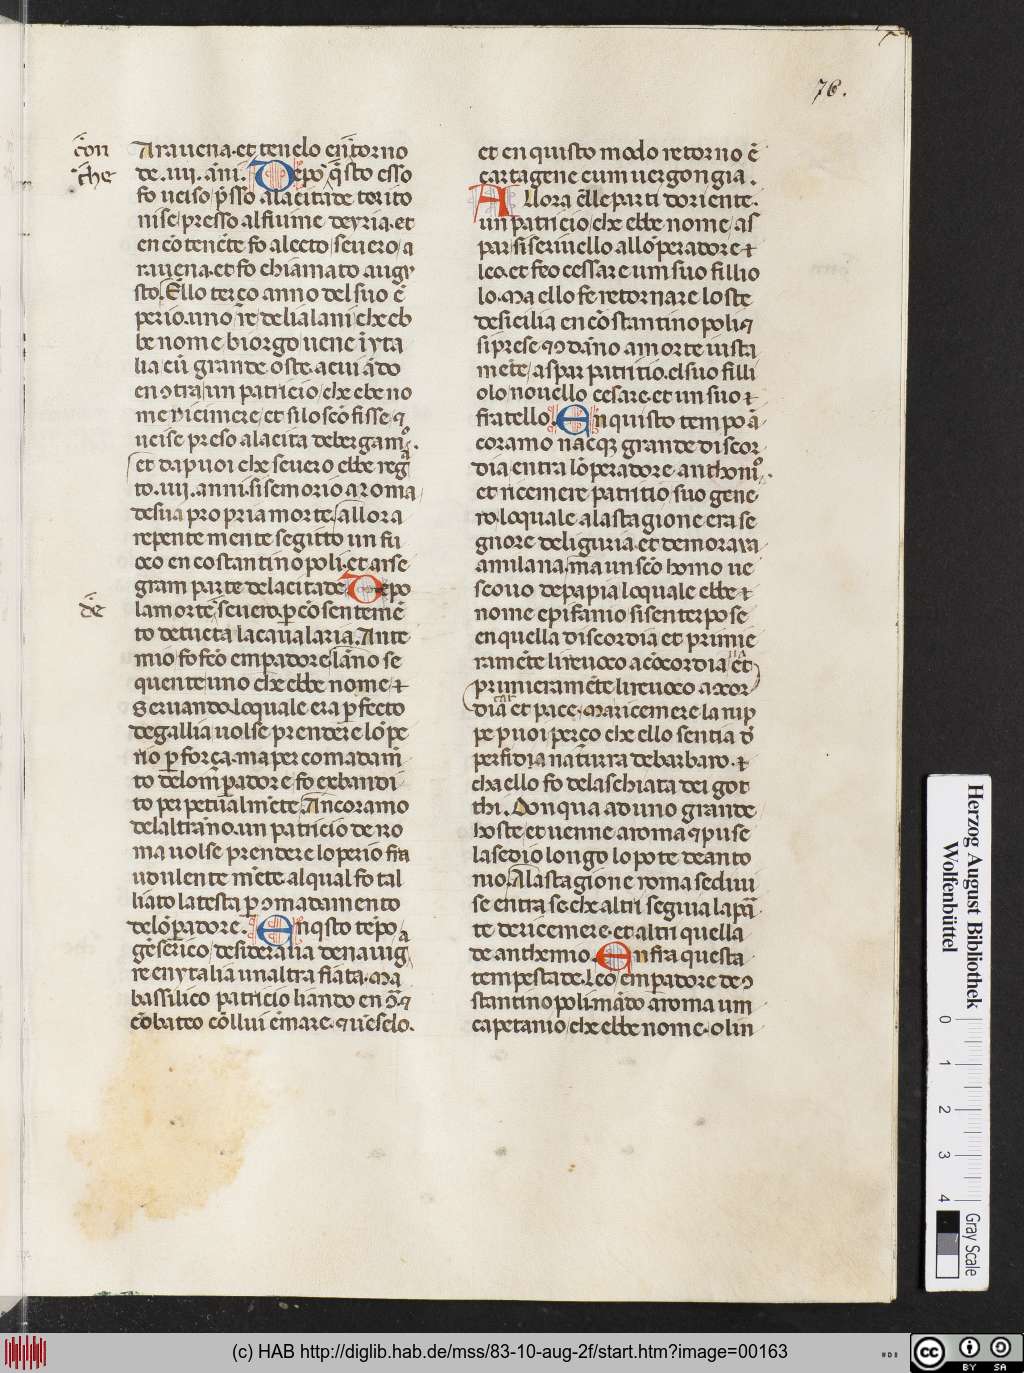 76.
co̅n
che
Arauena.et tenelo en̅torno
de.iiij.a̅ni. Depo q̅sto esso
fo uciso p̅sso alacita de torito
nise presso alfiume deyria.et
en co̅tene̅te fo alecto seuero a
rauena.et fo chiamato augu
sto. Ello terço anno del suo e̅
perio.uno re delialani che eb
be nome biorgo uene i̅yta
lia cu̅ grande oste. a cui a̅do
enꝯtra un patricio che ebe no
me ricimere et silo sco̅fisse ⁊
ucise preso alacita debergamo.
et dapuoi che seuero ebbe regna
to.iiij.anni.sisemorio aroma
desua propria morte. allora
repente mente segitto un fu
oco en costantinopoli.et arse
gram parte delacitade Depo
de
la morte seuero. p̱ co̅senteme̅
to detucta lacaualaria. Ante
mio fo fc̅o emp̱adore. la̅no se
quente uno che ebbe nome
seruando. loquale era p̱fecto
degallia uolse prendere lo̅pe
rio p̱ força. ma per comadam̅
to delomp̱adore fo exbandi
to perpetualme̅te. Ancoramo
delaltra̅no. un patricio de ro
ma uolse prendere loperio fra
udulente me̅te. alqual fo tal
liato latesta p̱ ꝯmadamento
delo̅p̱adore. Enq̅sto te̅po
ge̅serico desideraua denauiga
re enytalia unaltra fiata. Ma
basilico patricio liando en ꝯ̅ ⁊
co̅bateo co̅llui e̅mare. ⁊ ue̅selo.
et en quisto modo retorno e̅
cartagene cum uergongia.
Allora e̅lle parti doriente.
un patricio che ebbe nome as
par si seriuello allo̅peradore
leo. et feo cessare um suo fillio
lo. Ma ello fe retornare loste
desicilia en co̅stantinopoli ⁊
si prese ⁊ ꝯda̅no amorte iusta
me̅te aspar patritio. el suo filli
olo nouello cesare. et un suo
fratello. Enquisto tempo a̅
coramo nacq̅ grande discor
dia entra lo̅peradore anthonio.
et ricemere patritio suo gene
ro. loquale alastagione era se
gnore deliguria. et demoraua
amilana. ma un sc̅o homo ue
scouo depapia loquale ebbe
nome epifanio si senterpose
enquella discordia et primie
rame̅te lireuoco aco̅cordia et
primierame̅te lireuoco aꝯcor
dia et pace. Ma ricemere la rup
pe puoi perço che ello sentia d̅
perfidia natura debarbaro.
cha ello fo delaschiata dei got
thi. Donqua aduno grande
hoste et uenne aroma ⁊ puse
lasedio longo lo pote deanto
nio. Alastagione roma sediui
se entra se che altri seguia lap̱a
te dericemere. et altri quella
de anthemio. Enfra questa
tempestade. Leo emp̱adore deꝯ
stantinopoli. ma̅do aroma um
capetanio che ebbe nome. olin
Herzog August Bibliothek
Wolfenbüttel
0 1 2 3 4
Gray Scale
(c) HAB http://diglib.hab.de/mss/83-10-aug-2f/start.htm?image=00163
cc BY SA